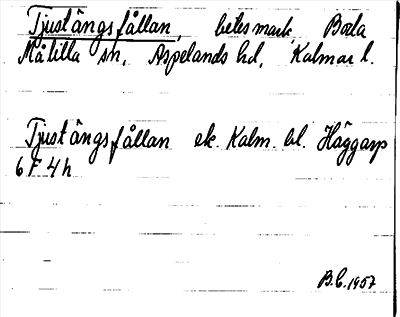 Tjustängsfållan, betesmark, Boda
Målilla sn, Aspelands hd, Kalmar l.
Tjustängsfållan ek. Kalm. bl. Häggarp
6 F 4 h
B.C. 1957